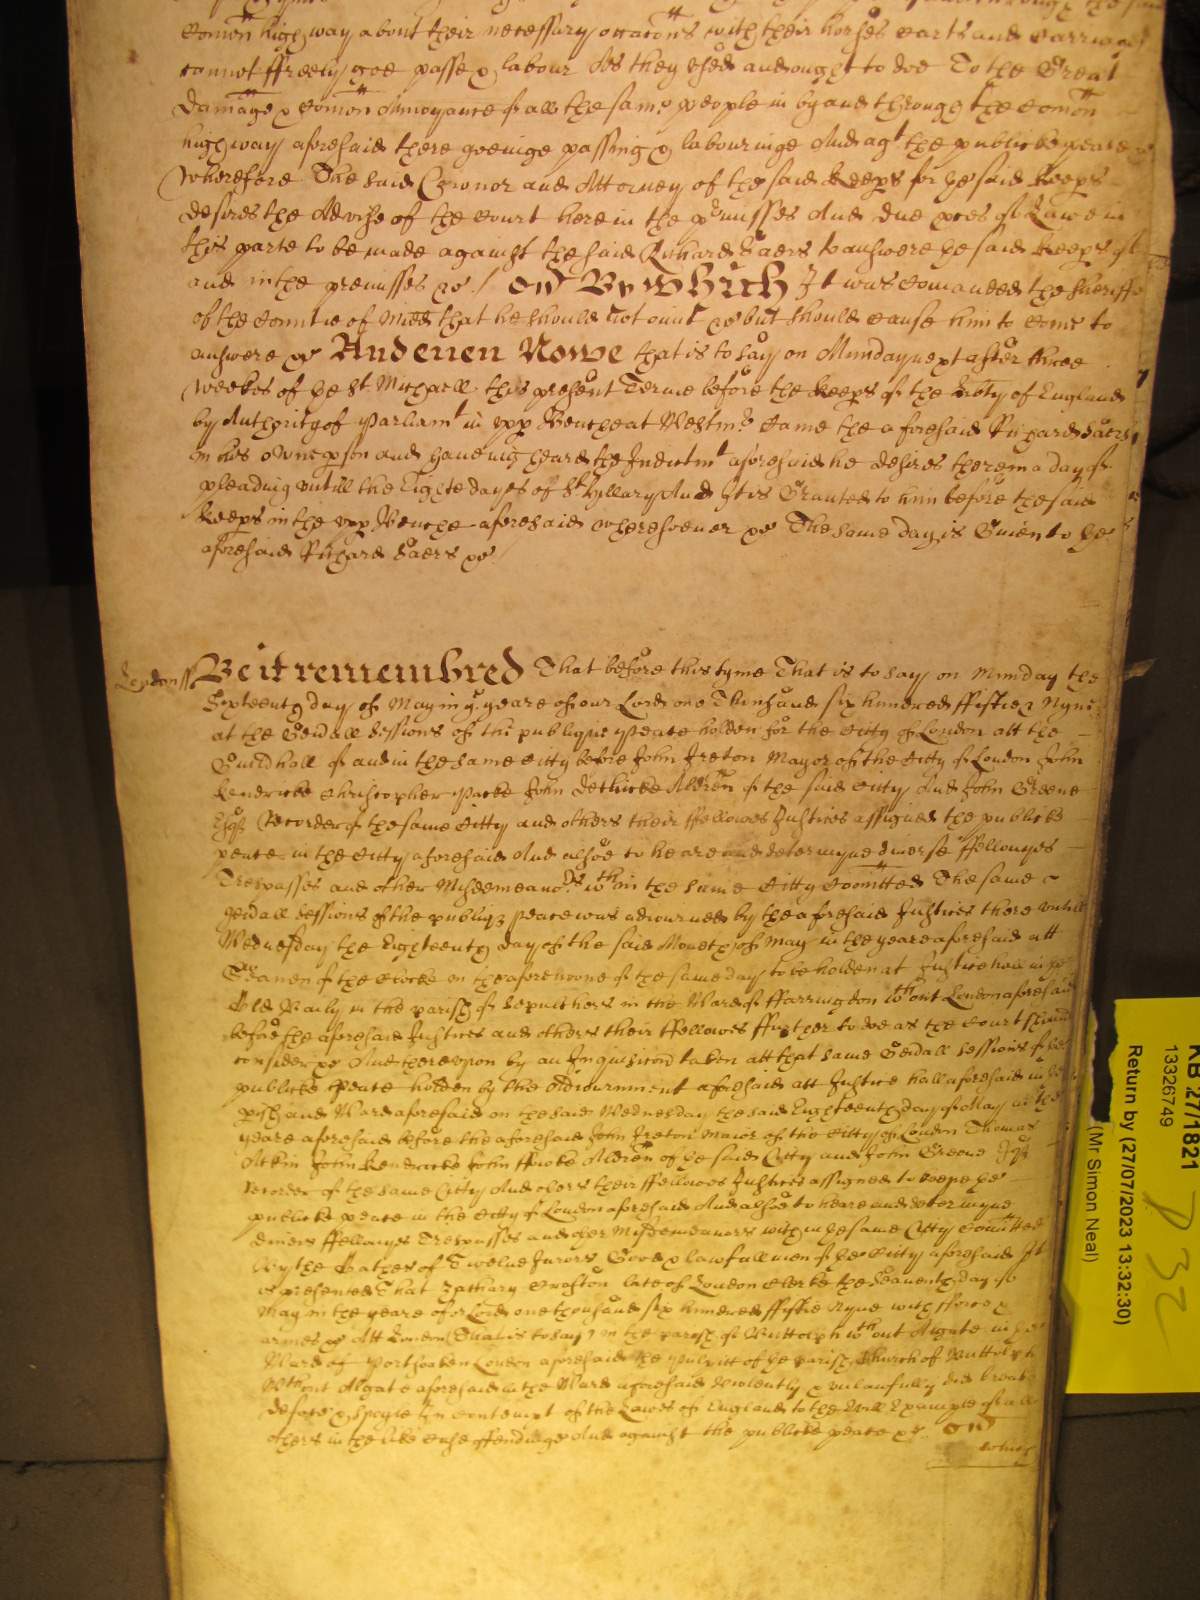 Comon high way about their necessary occacons with their horses carts and carriages
cannot ffreely goe passe & labour As they vsed and ought to doe To the Great
Damage & Comon Annoyance of all the same people in by and through the Comon
high way aforesaid there goeinge passing & labouringe And agt the publicke peace &c
Wherefore The said Coronor and Attorney of the said Keeprs for ye said Keeprs
desires the Advise of the Court here in the prmisses And due proces of Lawe in
this parte to be made against the said Richard Saers to answere ye said Keeprs of
and in the premisses &c / On Bywhich It was Comanded the Sheriffe
of the Countie of Midd that he should not omit &c but should cause him to come to
answere &c And en Nowe that is to say on Munday next after three
weekes of ye St Michaell this present Terme before the Keeprs of the liberty of England
by Authority of Parliamt in vpp Benche at Westmr Came the aforesaid Richard Saers
in his owne pson and haveing heard the Indictmt aforesaid he desires therein a day of
pleading vntill the Eighte dayes of St Hyllary And It is Granted to him before the said
Keeprs in the vpp Benche aforesaid wheresoever &c The same day is Given to ye
aforesaid Richard Saers &c /
London ss Be it remembred That before this tyme That is to say on Munday the
Sixteenth day of May in ye yeare of our Lord one Thousand six hundred ffiftie & Nyne
at the Genall Sessions of the publique Peace holden for the Citty of London att the
Guildhall of and in the same Citty before John Ireton Mayor of the Citty of London John
Kendricke Christopher Packe John Dethicke Aldren of the said Citty And John Greene
Esqr Recorder of the same Citty and others their ffellowes Justices assigned the publicke
peace in the Citty aforesaid And alsoe to heare and determyne diverse ffellonyes
Trespasses and other Misdemeanors wthin the same Citty Comitted The same
genall Sessions of the publiq peace was adiourned by the aforesaid Justices there vntill
Wednesday the Eighteenth day of the said Moneth of May in the yeare aforesaid att
Seaven of the Clocke in the aforenoone of the same day to be holden at Justice hall in ye
Old Baily in the parish of Sepulchers in the Ward of ffarringdon wthout London aforesaid
before the aforesaid Justices and others their ffellowes ffurther to doe as the Court should
consider &c And therevpon by an Inquisicon taken att that same Genall Sessions of the
publicke Peace holden by the Adiournment aforesaid att Justice hall aforesaid in ye
pish and Ward aforesaid on the said Wednesday the said Eighteenth day of May in the
yeare aforesaid before the aforesaid John Ireton Maior of the Citty of London Thomas
Atkin John Kendricke John ffowke Aldren of ye said Citty and John Greene Esqr
Recorder of the same Citty And others their ffellowes Justices assigned to keepe ye
publicke peace in the Citty of London aforesaid And alsoe to heare and determyne
divers ffellonyes Trespasses and other Misdemeanors within ye same Citty Comitted
by the Oathes of Twelve Jurors Good & lawfull men of ye Citty aforesaid It
is presented That Zachary Crofton late of London Clerke the Seaventh day of
May in the yeare of or Lord one thousand six hundred ffiftie Nyne with fforce &
armes &c Att London That is to say in the parish of Buttolph wthout Algate in ye
Ward of Portsoken London aforesaid the Pulpitt of ye parish Church of Buttolph
wthout Algate aforesaid in the Ward aforesaid Violently & vnlawfully did breake
deface & spoyle In contempt of the Lawes of England to the Evill Example of all
others in the like case offending And against the publicke peace &c On
which
KB 27/1821
13326749
Return by (27/07/2023 13:32:30)
(Mr Simon Neal)